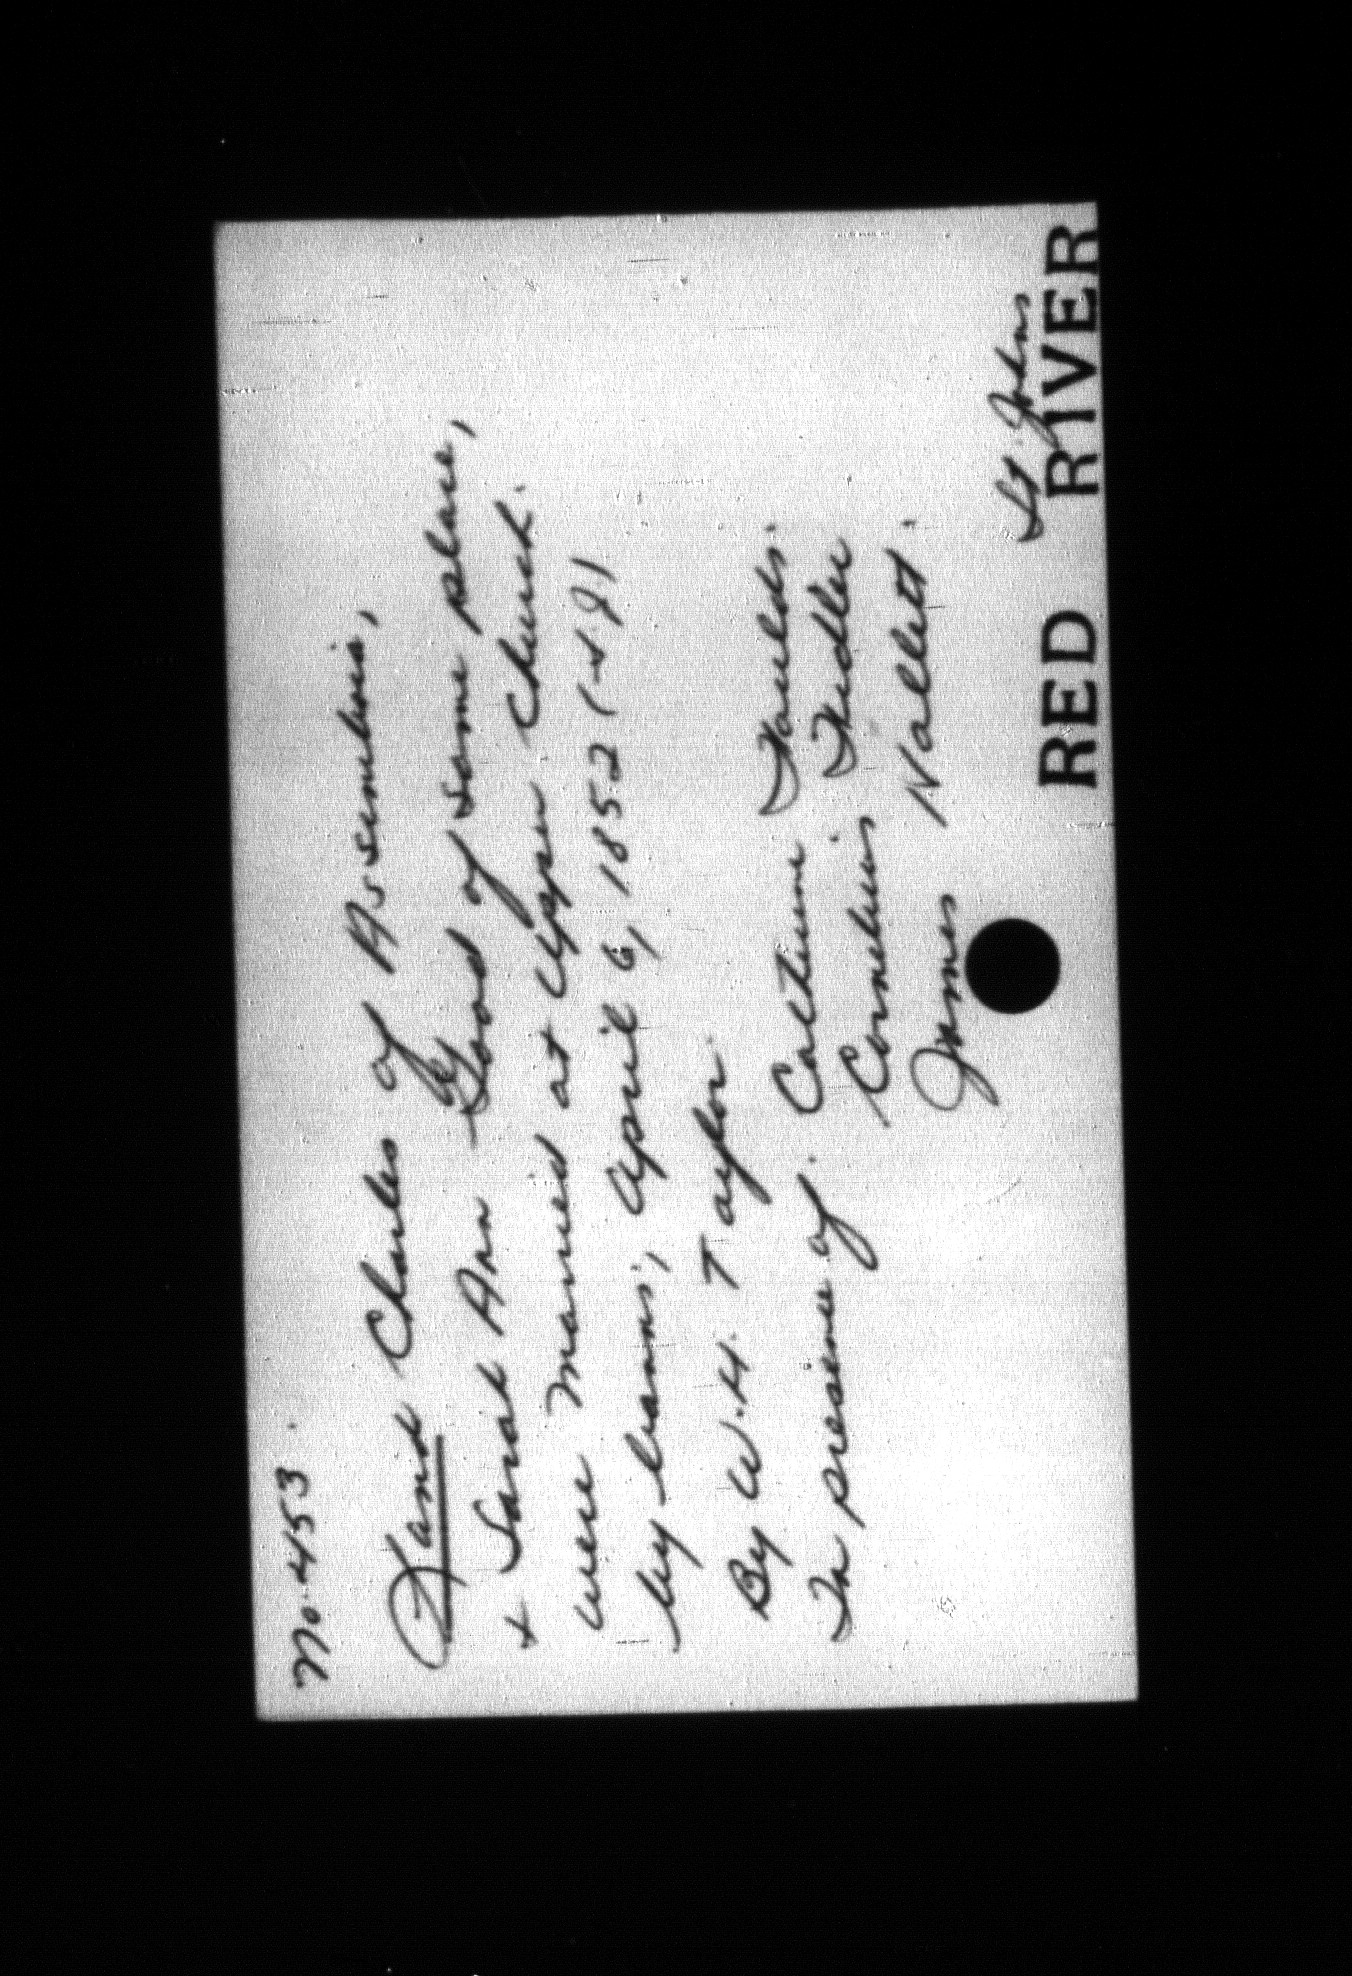 No. 453.
Hand Charles of Assiniboia,
& Sarah Ann Good of same place,
were married at Upper Church.
by banns, April 6, 1852
By W. H. Taylor.
In presence of. Catherine Faulds.
Cornelius Fidler
James Nallett.
St. Johns
RED RIVER